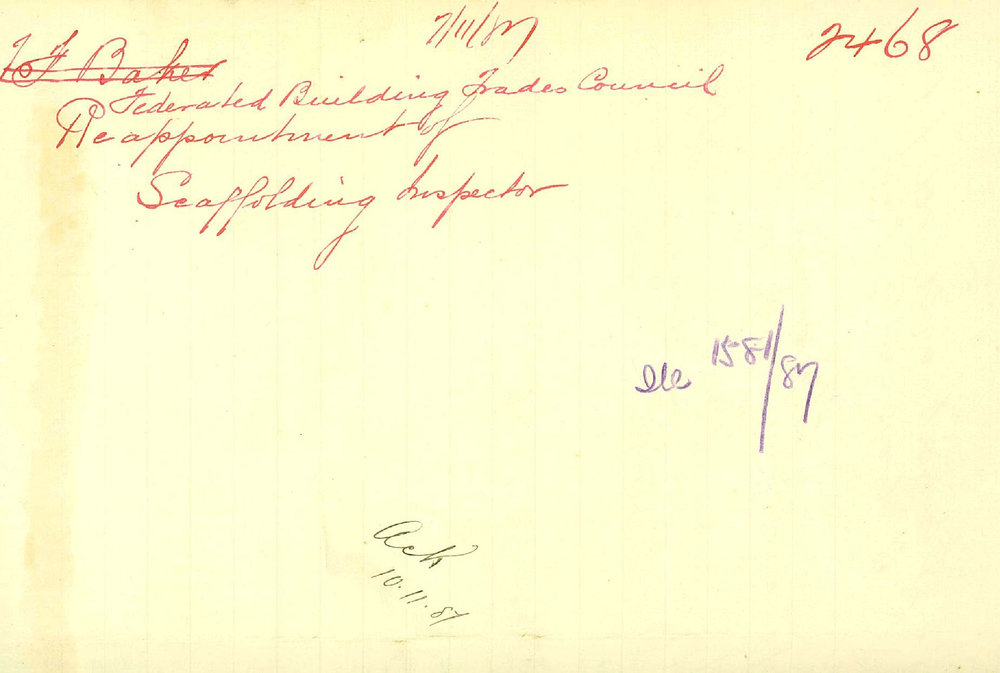 7/11/87
2468
Baker
Federated Building Trades Council
Re appointment of
Scaffolding Inspector
1581/87
Ack
10.11.87